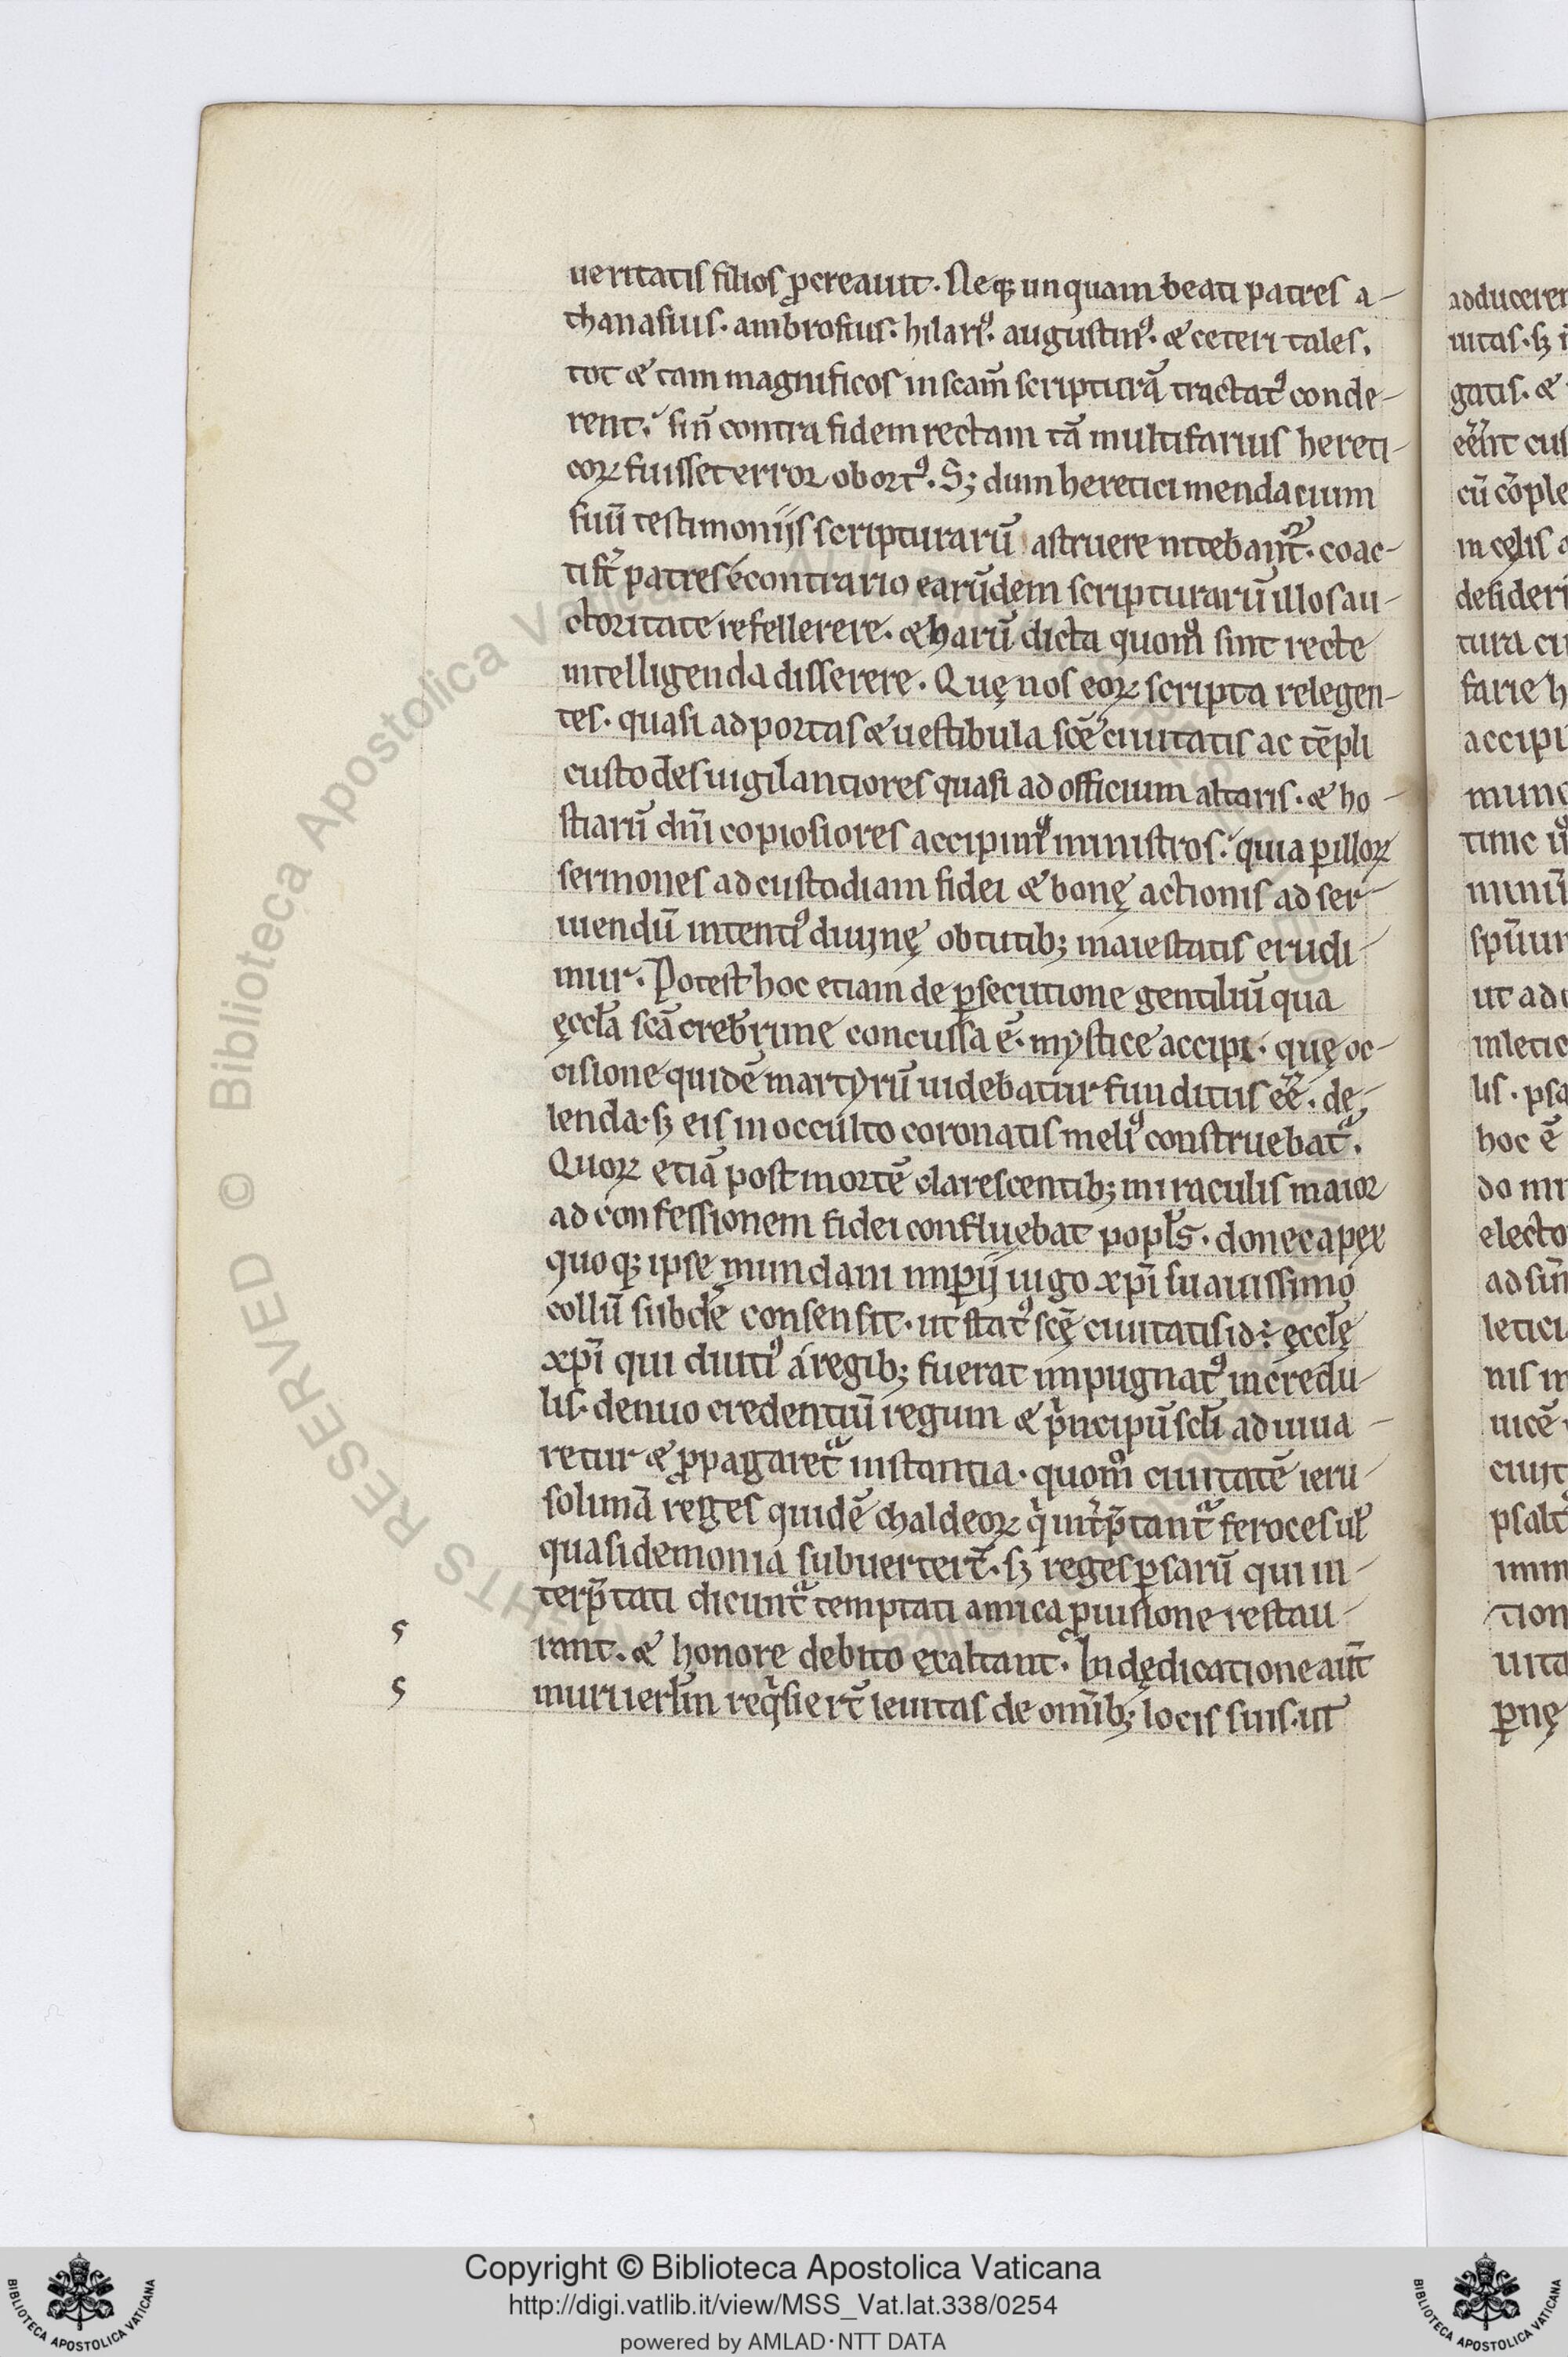 ueritatis filios ꝓcreauit. Neqꝫ unquam beati patres a-
thanasius. ambrosius. hilariꝰ. augustinꝰ. & ceteri tales.
tot & tam magnificos in scam̄ scripturā tractatꝰ conde-
rent. sin̄ contra fidem rectam tā multifarius hereti-
coꝝ fuisset error obortꝰ. Sꝫ dum heretici mendacium
suū testimonijs scripturarū astruere nitebant᷑. coac-
ti st̄ patres econtrario earūdem scripturarū illos au-
ctoritate refellerere. & harū dicta quom̊ sint recte
intelligenda disserere. Quę nos eoꝝ scripta relegen-
tes. quasi ad portas & uestibula scē ciuitatis ac tēpli
custodes uigilantiores quasi ad officium altaris. & ho-
stiarū dn̄i copiosiores accipimꝰ ministros. quia ꝑ illoꝝ
sermones ad custodiam fidei & bonę actionis ad ser-
uiendū intentiꝰ diuinę obtutibꝫ maiestatis erudi-
mur. Potest hoc etiam de ꝑsecutione gentiliū qua
ęccl̄a scā creberrime concussa ē. mystice accipi. quę oc-
cisione quidē martyrū uidebatur funditus eē̄. de-
lenda. sꝫ eis in occulto coronatis meliꝰ construebat᷑.
Quoꝝ etiā post mortē clarescentibꝫ miraculis maior
ad confessionem fidei confluebat popl̄s. donec apex
quoqꝫ ipse mundani imꝑij iugo xp̄i suauissimo
collū subdē consensit. ut statꝰ scę̄ ciuitatis id ÷ ęccl̄ę
xp̄i qui diutiꝰ a regibꝫ fuerat impugnatꝰ incredu-
lis. denuo credentiū regum & pͥncipū scl̄i adiuua-
retur & ꝓpagaret᷑ instantia. quom̊ ciuitatē ieru-
solimā reges quidē chaldeoꝝ qͥ int̄p̄tant᷑ feroces ul̄
quasi demonia subuertert̄. sꝫ reges ꝑsarū qui in-
terp̄tati dicunt᷑ temptati amica ꝓuisione restau-
rant. & honore debito exaltant. In dędicatione aūt
muri ierl̄m reqͥsiert̄ leuitas de omībꝫ locis suis. ut